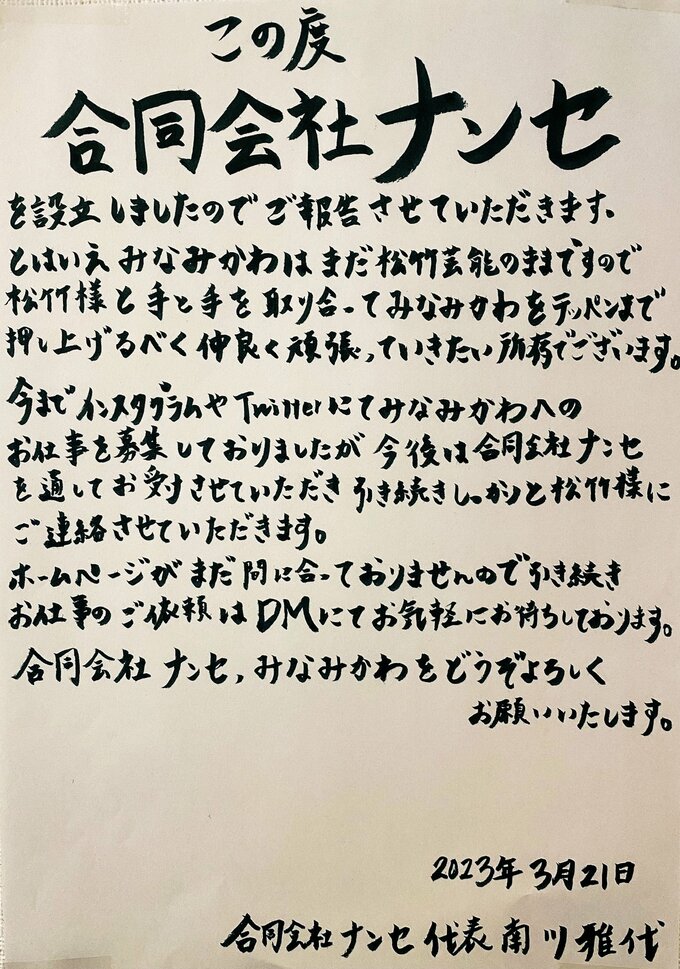 この度
合同会社ナンセ
を設立しましたのでご報告させていただきます、
とはいえみなみかわはまだ松竹芸能のままですので
松竹様と手と手を取り合ってみなみかわをテッペンまで
押し上げるべく仲良く頑張っていきたい所存でございます。
今までインスタグラムやTwitterにてみなみかわへの
お仕事を募集しておりましたが今後は合同会社ナンセ
を通してお受けさせていただき引き続きしっかりと松竹様に
ご連絡させていただきます。
ホームページがまだ間に合っておりませんので引き続き
お仕事のご依頼はDMにてお気軽にお待ちしております。
合同会社ナンセ,みなみかわをどうぞよろしく
お願いいたします。
2023年3月21日
合同会社ナンセ代表南川雅代